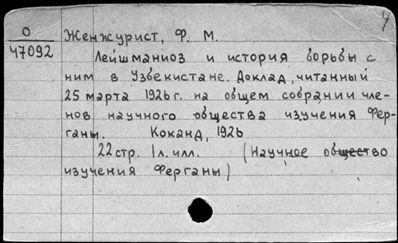 4
О
47092
Женжурист, Ф. М.
Лейшманиоз и история борьбы с
ним в Узбекистане. Доклад, читанный
25 марта 1926 г. на общем собрании чле-
нов научного общества изучения Фер-
ганы. Коканд, 1926
22 стр. 1 л. илл. (Научное общество
изучения Ферганы)